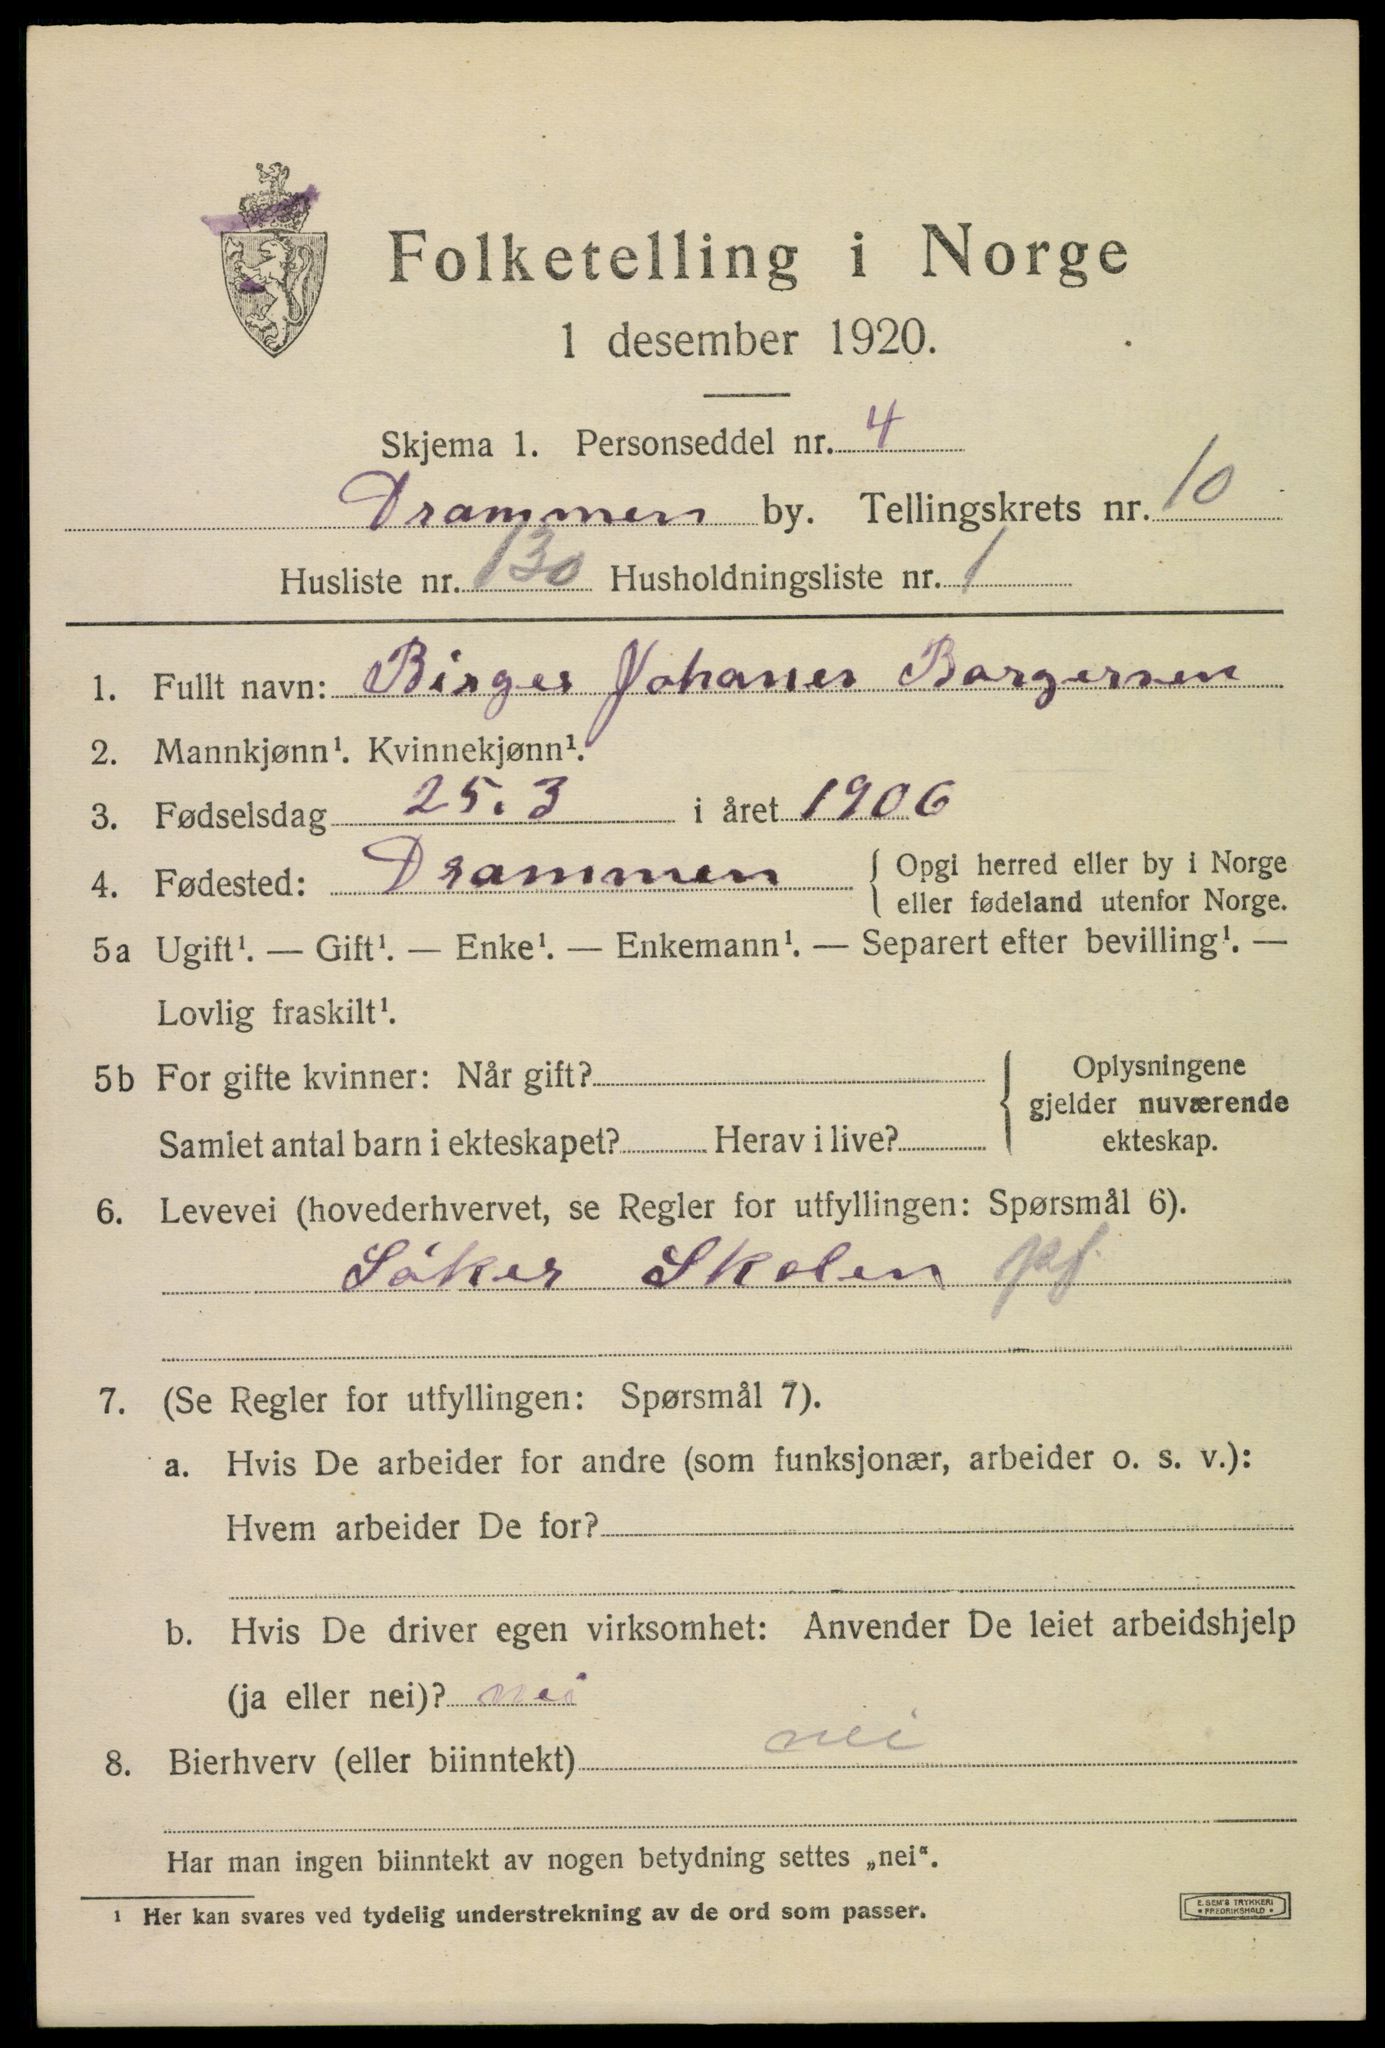 Folketelling i Norge
1 desember 1920.
Skjema 1. Personseddel nr. 4
Drammen by. Tellingskrets nr. 10
Husliste nr. 130 Husholdningsliste nr. 1
1. Fullt navn: Birger Johanes Borgersen
2. Mannkjønn¹. Kvinnekjønn¹.
3. Fødselsdag 25.3 i året 1906
4. Fødested: Drammen { Opgi herred eller by i Norge
eller fødeland utenfor Norge.
5a Ugift¹. — Gift¹. — Enke¹. — Enkemann¹. — Separert efter bevilling¹. —
Lovlig fraskilt¹.
5b For gifte kvinner: Når gift? { Oplysningene
gjelder nuværende
Samlet antal barn i ekteskapet? Herav i live? ekteskap.
6. Levevei (hovederhvervet, se Regler for utfyllingen: Spørsmål 6).
Söker Skolen
7. (Se Regler for utfyllingen: Spørsmål 7).
a. Hvis De arbeider for andre (som funksjonær, arbeider o. s. v.):
Hvem arbeider De for?
b. Hvis De driver egen virksomhet: Anvender De leiet arbeidshjelp
(ja eller nei)? nei
8. Bierhverv (eller biinntekt) nei
Har man ingen biinntekt av nogen betydning settes „nei“.
¹ Her kan svares ved tydelig understrekning av de ord som passer.
E. SEM'S TRYKKERI
* FREDRIKSHALD *